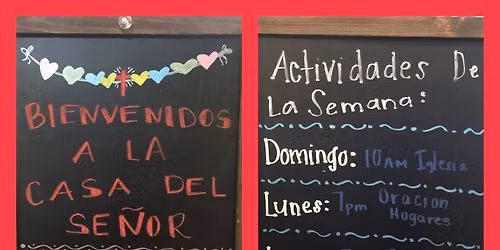 BIENVENIDOS
A LA
CASA DEL
SEÑOR
Actividades De
La Semana:
Domingo: 10 AM Iglesia
Lunes: 7pm Oracion
Hogares